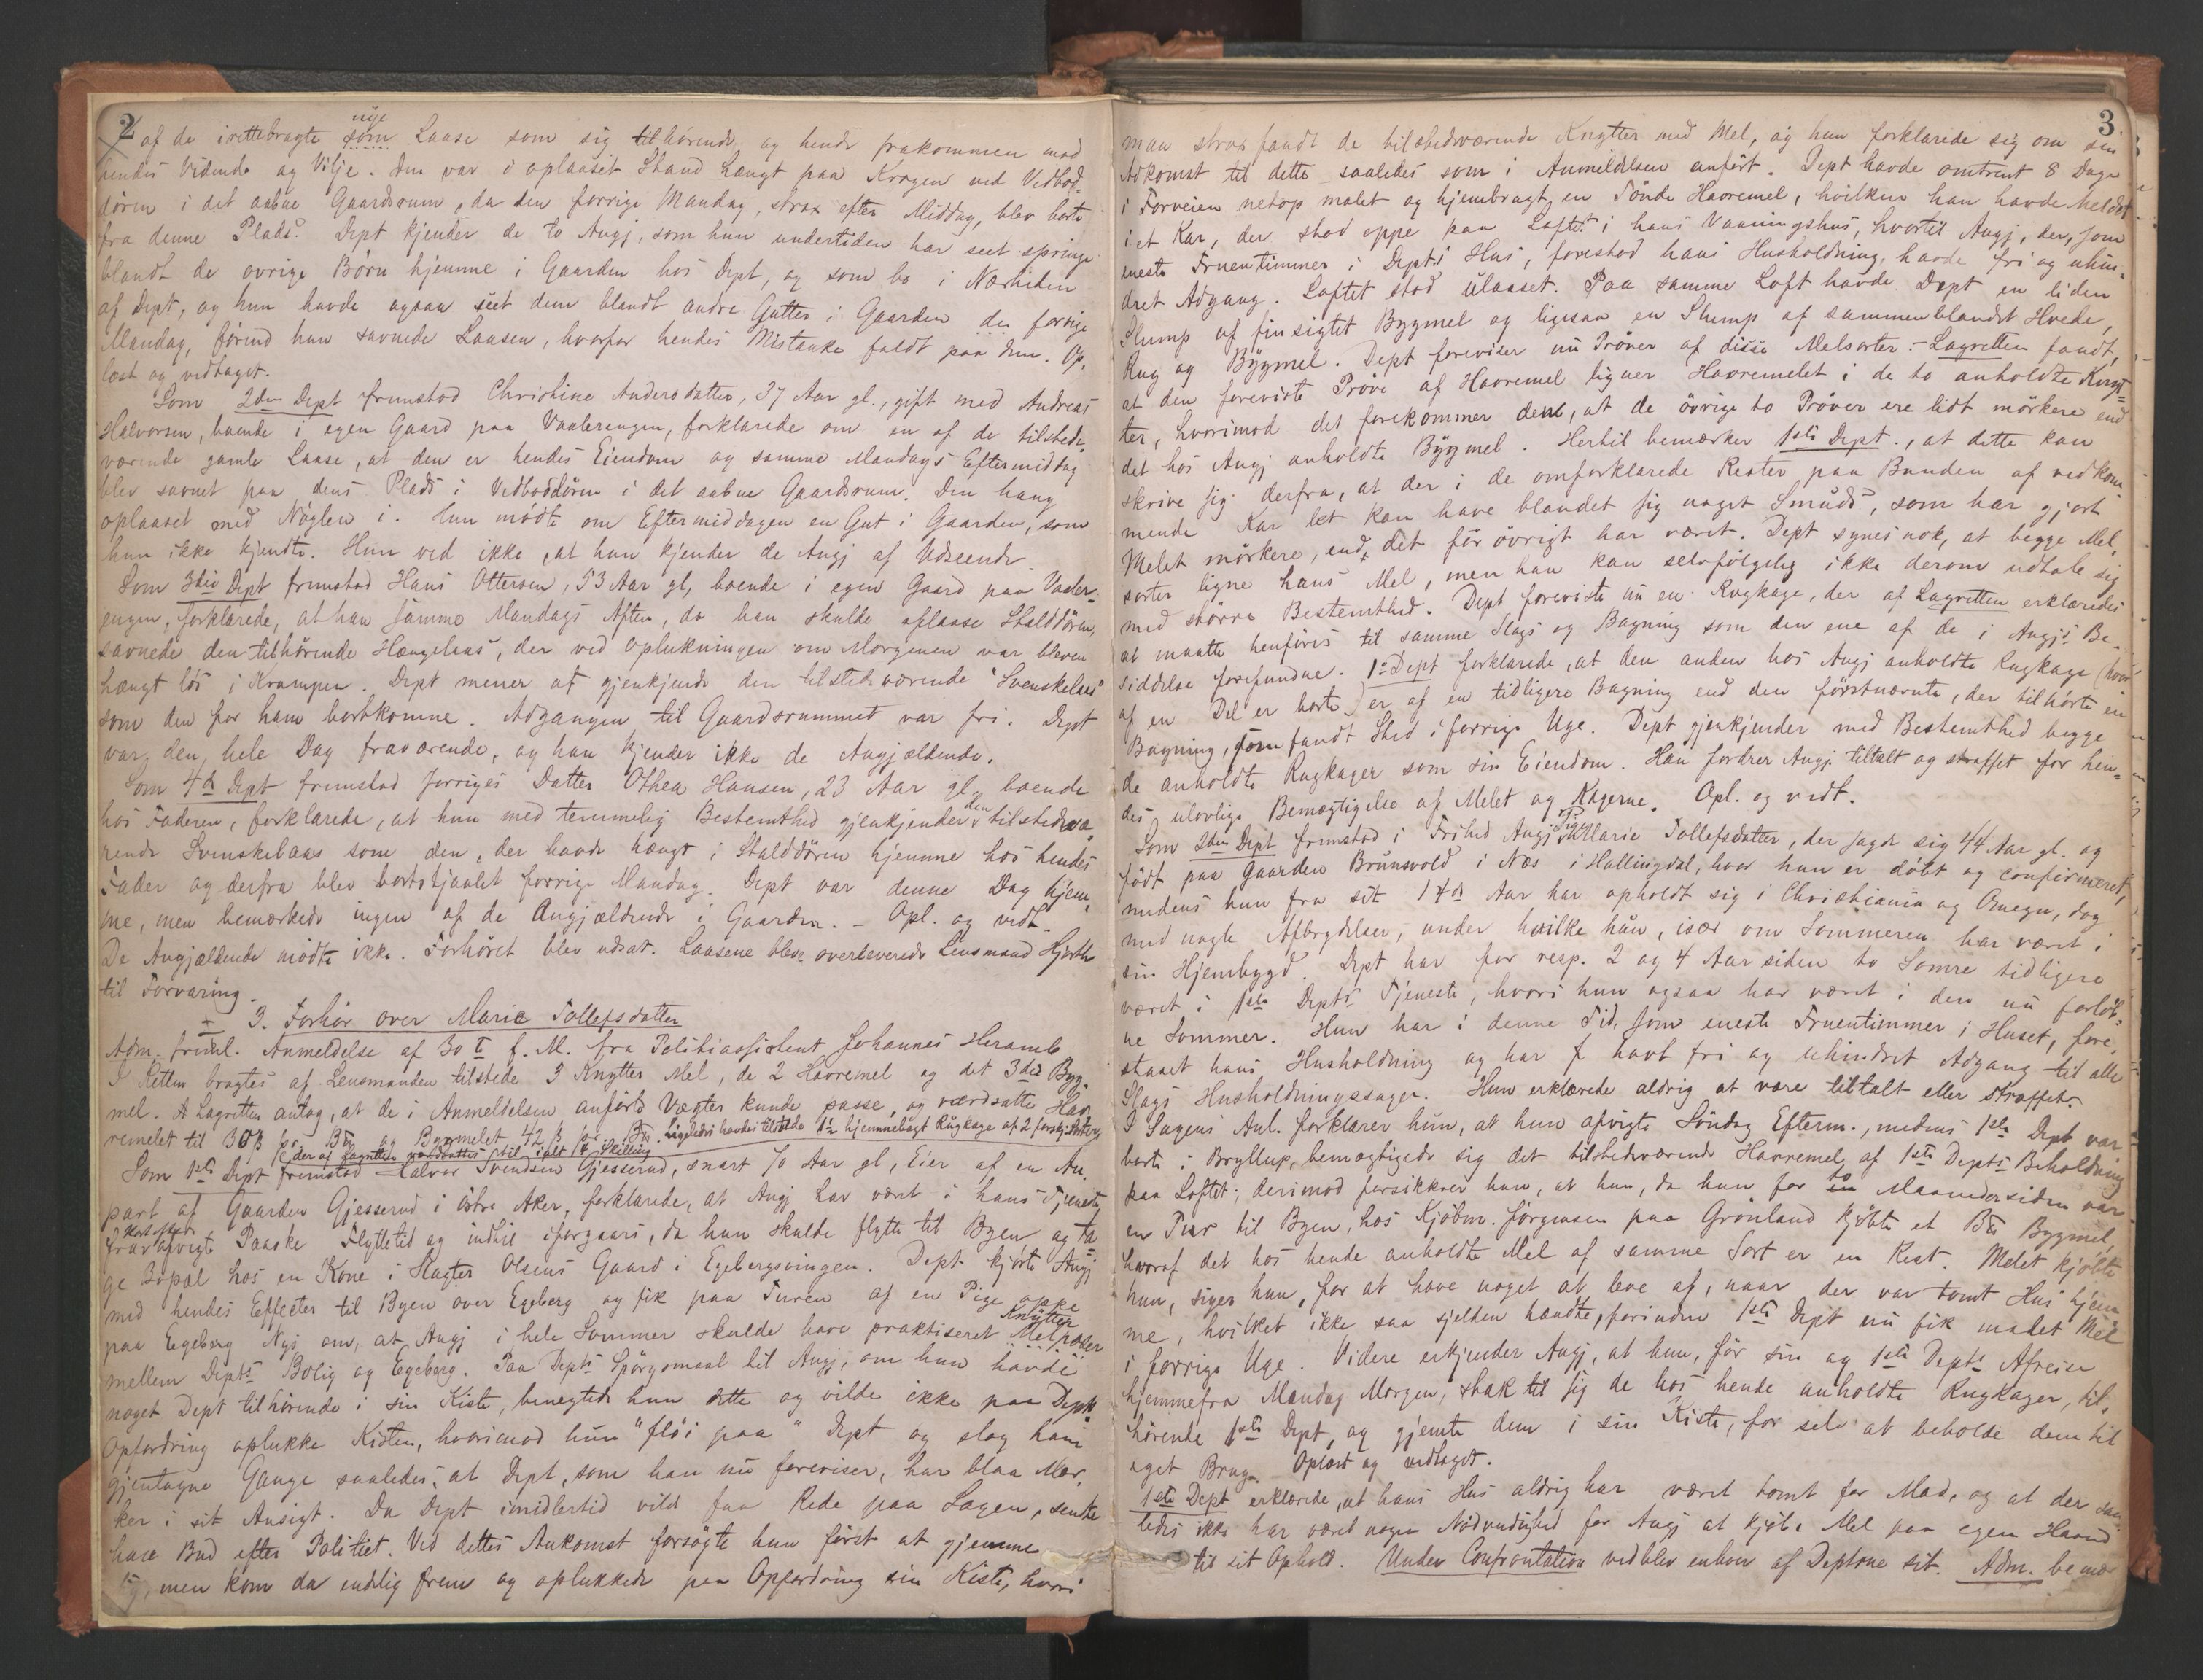 2
af de irettebragte nye som Laase som sig tilhørende og hende frakommen mod
hendes Vidende og Vilje. Den var i oplaaset Stand hængt paa Krogen ved Vedbod-
døren i det aabne Gaardsrum, da den forrige Mandag, strax efter Middag, blev borte
fra denne Plads. Dept kjender de to Angj, som hun undertiden har seet springe
blandt de øvrige Børn hjemme i Gaarden hos Dept, og som bo i Nærheden
af Dept, og hun havde ogsaa seet dem blandt andre Gutter i Gaarden den forrige
Mandag, førend hun savnede Laasen, hvorfor hendes Mistanke faldt paa dem. Op-
læst og vedtaget.
Som 2den Dept fremstod Christine Andersdatter, 37 Aar gl., gift med Andreas
Halvorsen, boende i egen Gaard paa Vaalerengen, forklarede om en af de tilstede-
værende gamle Laase, at den er hendes Eiendom og samme Mandags Eftermiddag
blev savnet paa dens Plads i Vedboddøren i det aabne Gaardsrum. Den hang
oplaaset med Nøglen i. Hun mødte om Eftermiddagen en Gut i Gaarden, som
hun ikke kjendte. Hun ved ikke, at hun kjender de Angj af Udseende.
Som 3die Dept fremstod Hans Ottersen, 53 Aar gl, boende i egen Gaard paa Vaaler-
engen, forklarede, at han samme Mandags Aften, da han skulde aflaase Stalddøren,
savnede den tilhørende Hængelaas, der ved Oplukningen om Morgenen var bleven
hængt løs i Krampen. Dept mener at gjenkjende den tilstedeværende "Svenskelaas"
som den for ham bortkomne. Adgangen til Gaardsrummet var fri. Dept
var den hele Dag fraværende, og han kjender ikke de Angjældende.
Som 4de Dept fremstod forriges Datter Othea Hansen, 23 Aar gl, boende
hos Faderen, forklarede, at hun med temmelig Bestemthed gjenkjender den tilstedevæ-
rende Svenskelaas som den, der havde hængt i Stalddøren hjemme hos hendes
Fader og derfra blev bortstjaalet forrige Mandag. Dept var denne Dag hjem-
me, men bemærkede ingen af de Angjældende i Gaarden. – Opl. og vedt.
De Angjældende mødte ikke. Forhøret blev udsat. Laasene bleve overleverede Lensmand Hjorth
til Forvaring.
3. Forhør over Marie Tollefsdatter
Adm. freml. Anmeldelse af 30 f. M. fra Politiassistent Johannes Heramb
I Retten bragtes af Lensmanden tilstede 3 Knytter Mel, de 2 Havremel og det 3die Byg-
mel. Lagretten antog, at de i Anmeldelsen anførte Vægter kunde passe, og værdsatte Hav-
remelet til 30 ß pr. Bµ og Bygmelet 42 ß pr. Bµ. Ligeledes havdes tilstede hjemmebagt Rugkage af 2 forskj. Sorter,
der af Lagretten værdsattes til ialt Skilling
Som 1ste Dept fremstod Halvor Svendsen Gjesserud, snart 70 Aar gl, Eier af en An-
part af Gaarden Gjesserud i østre Aker, forklarede, at Angj har været i hans Tjeneste
fra afvigte Paaske Flyttetid og indtil iforgaars, da hun skulde flytte til Byen og ta-
ge Bopæl hos en Kone i Slagter Olsens Gaard i Egebergsvingen. Dept kjørte Angj
med hendes Effecter til Byen over Egeberg og fik paa Turen af en Pige oppe
paa Egeberg Nys om, at Angj i hele Sommer skulde have praktiseret Knytter Melposer
mellem Depts Bolig og Egeberg. Paa Depts Spørgsmaal til Angj, om hun havde
noget Dept tilhørende i sin Kiste, benegtede hun dette og vilde ikke paa Depts
Opfordring oplukke Kisten, hvorimod hun "fløi paa" Dept og slog ham
gjentagne Gange saaledes, at Dept, som han nu foreviser, har blaa Mær-
ker i sit Ansigt. Da Dept imidlertid vilde faa Rede paa Sagen, sendte
han Bud efter Politiet. Ved dettes Ankomst forsøgte hun først at gjemme
sig, men kom da endelig frem og oplukkede paa Opfordring sin Kiste, hvori
3.
man strax fandt de tilstedeværende Knytter med Mel, og hun forklarede sig om sin
Adkomst til dette saaledes som i Anmeldelsen anført. Dept havde omtrent 8 Dage
i Forveien netop malet og hjembragt en Tønde Havremel, hvilken han havde heldet
i et Kar, der stod oppe paa Loftet i hans Vaaningshus, hvortil Angj, der, som
eneste Fruentimmer i Depts Hus, forestod hans Husholdning, havde fri og uhin-
dret Adgang. Loftet stod ulaaset. Paa samme Loft havde Dept en liden
Slump af finsigtet Bygmel og ligesaa en Slump af sammenblandet Hvede,
Rug og Bygmel. Dept foreviser nu Prøver af disse Melsorter. – Lagretten fandt,
at den foreviste Prøve af Havremel ligner Havremelet i de to anholdte Knyt-
ter, hvorimod det forekommer den, at de øvrige to Prøver ere lidt mørkere end
det hos Angj anholdte Bygmel. Hertil bemærker 1ste Dept., at dette kan
skrive sig derfra, at der i de omforklarede Rester paa Bunden af vedkom-
mende Kar let kan have blandet sig noget Smuds, som har gjort
Melet mørkere, end det før øvrigt har været. Dept synes nok, at begge Mel-
sorter ligne hans Mel, men han kan selvfølgelig ikke derom udtale sig
med større Bestemthed. Dept foreviste nu en Rugkage, der af Lagretten erklæredes
at maatte henføres til samme Slags og Bagning som den ene af de i Angjs Be-
siddelse forefundne. 1e Dept forklarede, at den anden hos Angj anholdte Rugkage (hvor-
af en Del er borte) er af en tidligere Bagning end den førstnævnte, der tilhørte en
Bagning, som fandt Sted i forrige Uge. Dept gjenkjender med Bestemthed begge
de anholdte Rugkager som sin Eiendom. Han fordrer Angj tiltalt og straffet for hen-
des ulovlige Bemægtigelse af Melet og Kagerne. Opl. og vedt.
Som 2den Dept fremstod i Frihed Angj Pige Marie Tollefsdatter, der sagde sig 44 Aar gl. og
født paa Gaarden Brunsvold i Næs i Hallingdal, hvor hun er døbt og confirmeret,
medens hun fra sit 14de Aar har opholdt sig i Christiania og Omegn, dog
med nogle Afbrydelser, under hvilke hun, især om Sommeren har været i
sin Hjembygd. Dept har for resp. 2 og 4 Aar siden to Somre tidligere
været i 1ste Depts Tjeneste, hvori hun ogsaa har været i den nu forløb-
ne Sommer. Hun har i denne Tid, som eneste Fruentimmer i Huset, fore-
staaet hans Husholdning og har havt fri og uhindret Adgang til alle
Slags Husholdningssager. Hun erklærede aldrig at være tiltalt eller straffet.
I Sagens Anl. forklarer hun, at hun afvigte Søndag Efterm., medens 1ste Dept var
borte i Bryllup, bemægtigede sig det tilstedeværende Havremel af 1ste Depts Beholdning
paa Loftet; derimod forsikkrer hun, at hun, da hun for to Maaneder siden var
en Tur til Byen, hos Kjøbm. Jørgensen paa Grønland kjøbte et Bµ Bygmel,
hvoraf det hos hende anholdte Mel af samme Sort er en Rest. Melet kjøbte
hun, siger hun, for at have noget at leve af, naar der var tomt Hus hjem-
me, hvilket ikke saa sjelden hændte, forinden 1ste Dept nu fik malet Mel
i forrige Uge. Videre erkjender Angj, at hun, før sin og 1ste Depts Afreise
hjemmefra Mandag Morgen, stak til sig de hos hende anholdte Rugkager, til-
hørende 1ste Dept, og gjemte dem i sin Kiste, for selv at beholde dem til
eget Brug. Oplæst og vedtaget.
1ste Dept erklærede, at hans Hus aldrig har været tomt for Mad, og at der saa-
ledes ikke har været nogen Nødvendighed for Angj at kjøbe Mel paa egen Haand
til sit Ophold. Under Confrontation vedblev enhver af Deptne sit. Adm. bemær